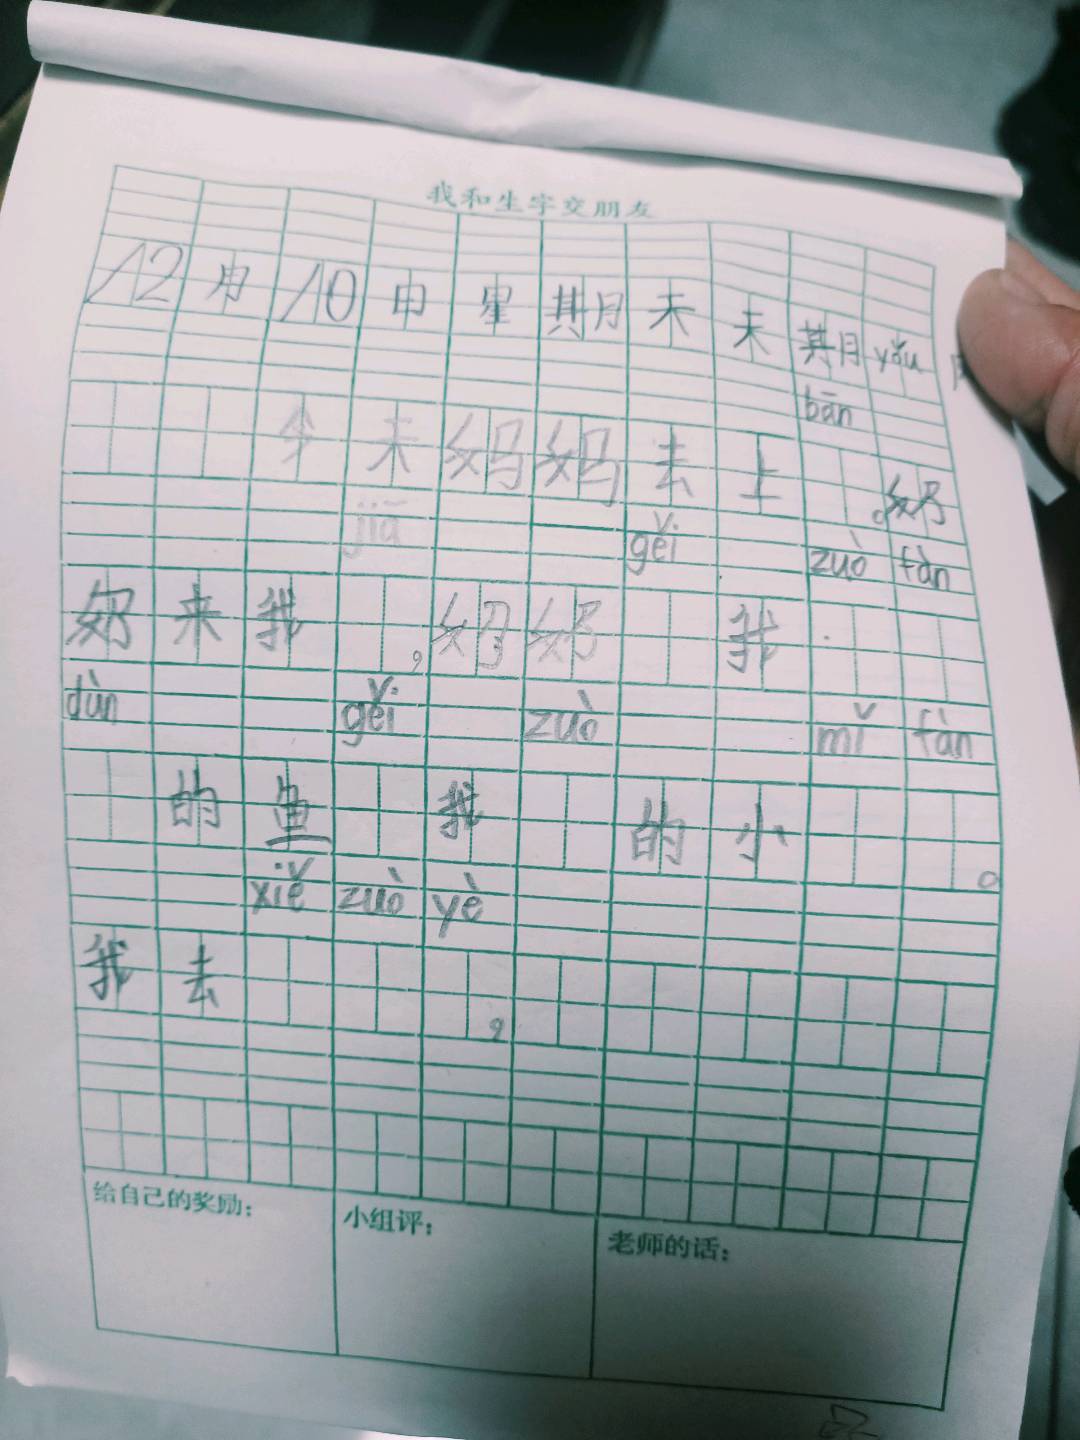 我和生字交朋友
12月10日星期天 天其月 yǒu
bān
今天妈妈去上 。奶
jiā gěi zuò fàn
奶来我 ,奶奶 我
dùn gěi zuò mǐ fàn
的鱼 我 的小 。
xiě zuò yè
我去 ,
给自己的奖励: 小组评: 老师的话: